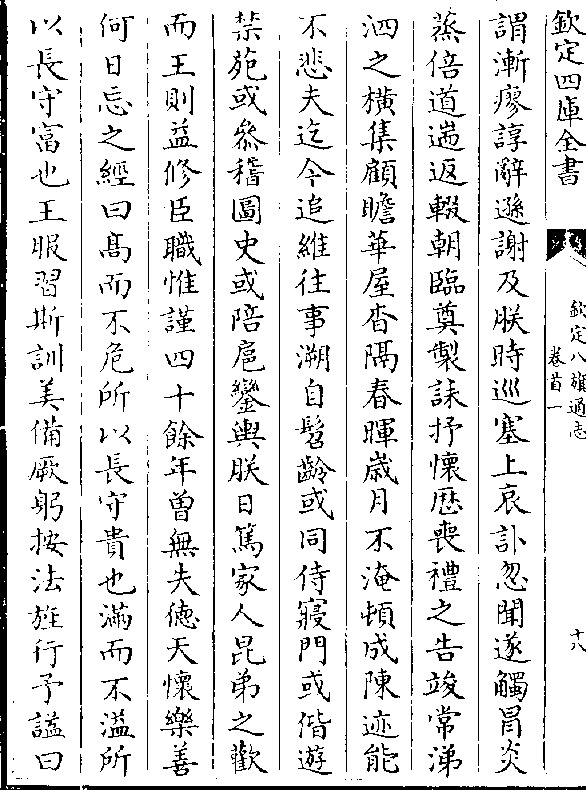 欽定四庫全書
欽定八旗通志
卷首一
十八
謂漸瘳諄辭遜謝及朕時巡塞上哀訃忽聞遂觸冒炎
蒸倍道遄返輟朝臨奠製誄抒懷歴喪禮之告竣常涕
泗之橫集顧瞻華屋杳隔春暉歳月不淹頓成陳迹能
不悲夫迄今追維往事溯自髫齡或同侍寢門或偕遊
禁苑或叅稽圖史或陪扈鑾輿朕日篤家人昆弟之歡
而王則益修臣職惟謹四十餘年曽無失徳天懷樂善
何日忘之經曰髙而不危所以長守貴也滿而不溢所
以長守富也王服習斯訓美備厥躬按法旌行予諡曰